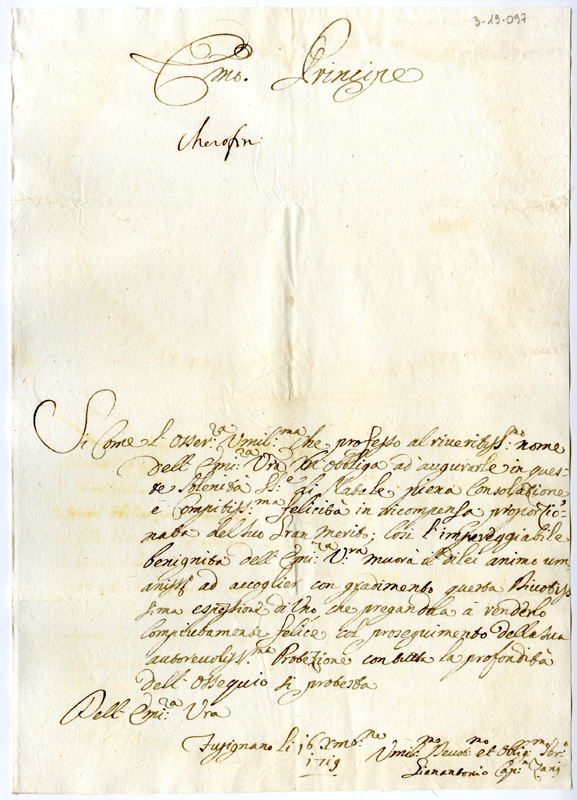 3-19-097
Em.o Principe
Si Come l'Osser.za Vmil.ma che professo al riveritiss.mo nome
dell'Emi.za Vra M'obbliga ad'augurarle in ques-
te Solenità SS.e di Natale piena Consolazione
e Compitiss.ma felicità in ricompensa proportio-
nata del suo Gran Merito; Così l'impareggiabile
benignità dell'Emi.za V.ra muova il di lei animo um
aniss ad accoglier con gradimento questa Divotis
sima espssione di Uno che pregandola a renderlo
Compiutamente felice col proseguimento della sua
autorevoliss.ma Protezione con tutta la profondità
dell'Ossequio si protesta
Dell'Emi.za Vra
Fusignano li 16 Xmb.re
1713
Vmil.mo Devot.mo et Oblig.mo Ser.e
Gianantonio Cap.n